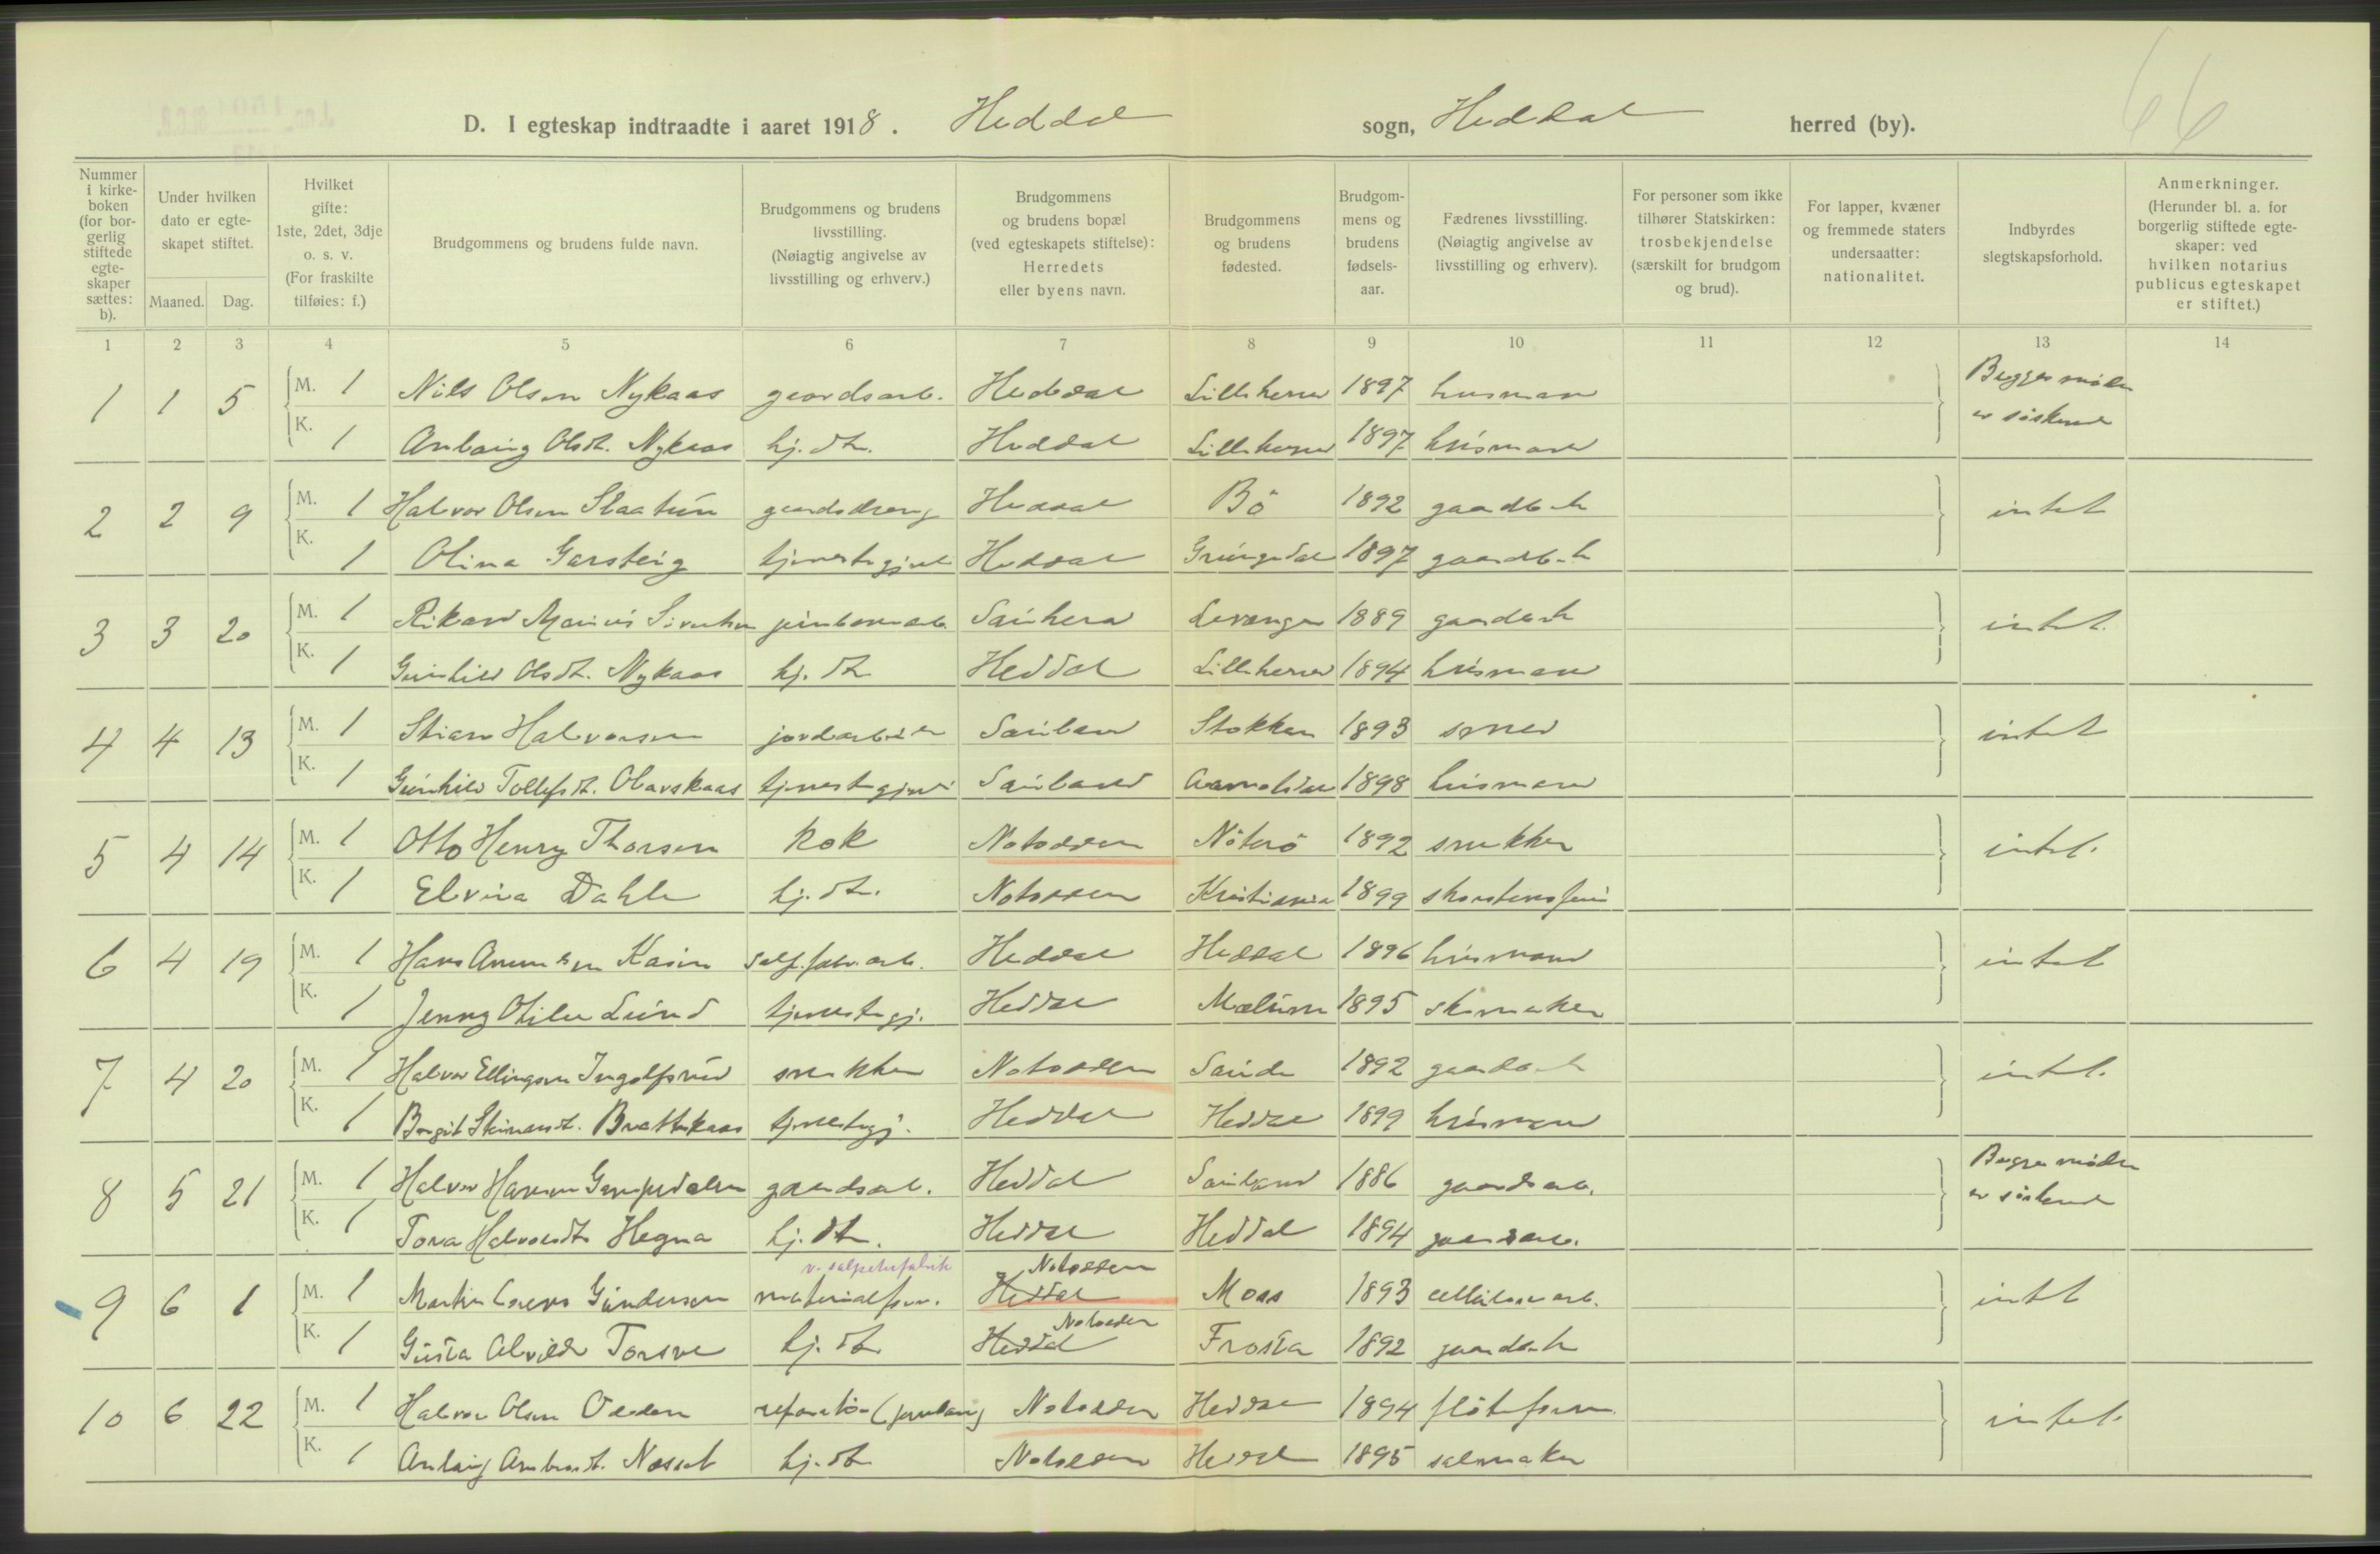 66
D. I egteskap indtraadte i aaret 1918. Heddal sogn, Heddal herred (by).
Nummer i kirke-boken (for bor-gerlig stiftede egte-skaper sættes: b).
Under hvilken dato er egte-skapet stiftet.
Maaned. Dag.
Hvilket gifte: 1ste, 2det, 3dje o. s. v. (For fraskilte tilføies: f.)
Brudgommens og brudens fulde navn.
Brudgommens og brudens livsstilling. (Nøiagtig angivelse av livsstilling og erhverv.)
Brudgommens og brudens bopæl (ved egteskapets stiftelse): Herredets eller byens navn.
Brudgommens og brudens fødested.
Brudgom-mens og brudens fødsels-aar.
Fædrenes livsstilling. (Nøiagtig angivelse av livsstilling og erhverv).
For personer som ikke tilhører Statskirken: trosbekjendelse (særskilt for brudgom og brud).
For lapper, kvæner og fremmede staters undersaatter: nationalitet.
Indbyrdes slegtskapsforhold.
Anmerkninger. (Herunder bl. a. for borgerlig stiftede egte-skaper: ved hvilken notarius publicus egteskapet er stiftet.)
1 2 3 4 5 6 7 8 9 10 11 12 13 14
1 1 5 M. 1 Nils Olsen Nykaas gaardsarb. Heddal Lilleherred 1897 husmand Begges mødre
K. 1 Anbjørg Olsdt. Nykaas hj. dt. Heddal Lilleherred 1897 husmand er søskende
2 2 9 M. 1 Halvor Olsen Slaatun gaardsdreng Heddal Bö 1892 gaardbr. intet
K. 1 Olina Garsteig tjenestegjent Heddal Grungedal 1897 gaardbr.
3 3 20 M. 1 Rikard Marius jernbanearb. Sauherad Levanger 1889 gaardbr. intet.
K. 1 Gunhild Olsdt. Nykaas hj. dt. Heddal Lilleherred 1894 husmand
4 4 13 M. 1 Stian Halvorsen jordarbeider Sauland Stokken 1893 smed intet
K. 1 Gunhild Tollefsdt. Olavskaas tjenestegjent Sauland 1898 husmand
5 4 14 M. 1 Otto Henry Thorsen kok Notodden Nöterö 1892 snekker intet.
K. 1 Elvira Dahle hj. dt. Notodden Kristiania 1899 skorstensfeier
6 4 19 M. 1 Hans Kasin salp.fabr.arb. Heddal Heddal 1896 husmand intet
K. 1 Jenny Otilie Lund tjenestegj. Heddal Mælum 1895 skomaker
7 4 20 M. 1 Halvor Ellingsen Ingolfsrud snekker Notodden Saude 1892 gaardbr. intet.
K. 1 Bergit Steinarsdt. Brattekaas tjenestegj. Heddal Heddal 1899 husmand
8 5 21 M. 1 Halvor Hansen gaardsarb. Heddal Sauland 1886 gaardsarb. Begges mødre
K. 1 Tona Halvorsdt. Hegna hj. dt. Heddal Heddal 1894 gaardsarb. er søskende
v. salpeterfabrik Notodden
9 6 1 M. 1 Martin Gundersen materialforv. Heddal Moss 1893 cellulosearb. intet
Notodden
K. 1 Gusta Alvilde Torsve hj. dt. Heddal Frosta 1892 gaardbr.
10 6 22 M. 1 Halvor Olsen Odden reparatör Notodden Heddal 1894 flöteform. intet.
K. 1 Anlaug Næset hj. dt. Notodden Heddal 1895 salmaker